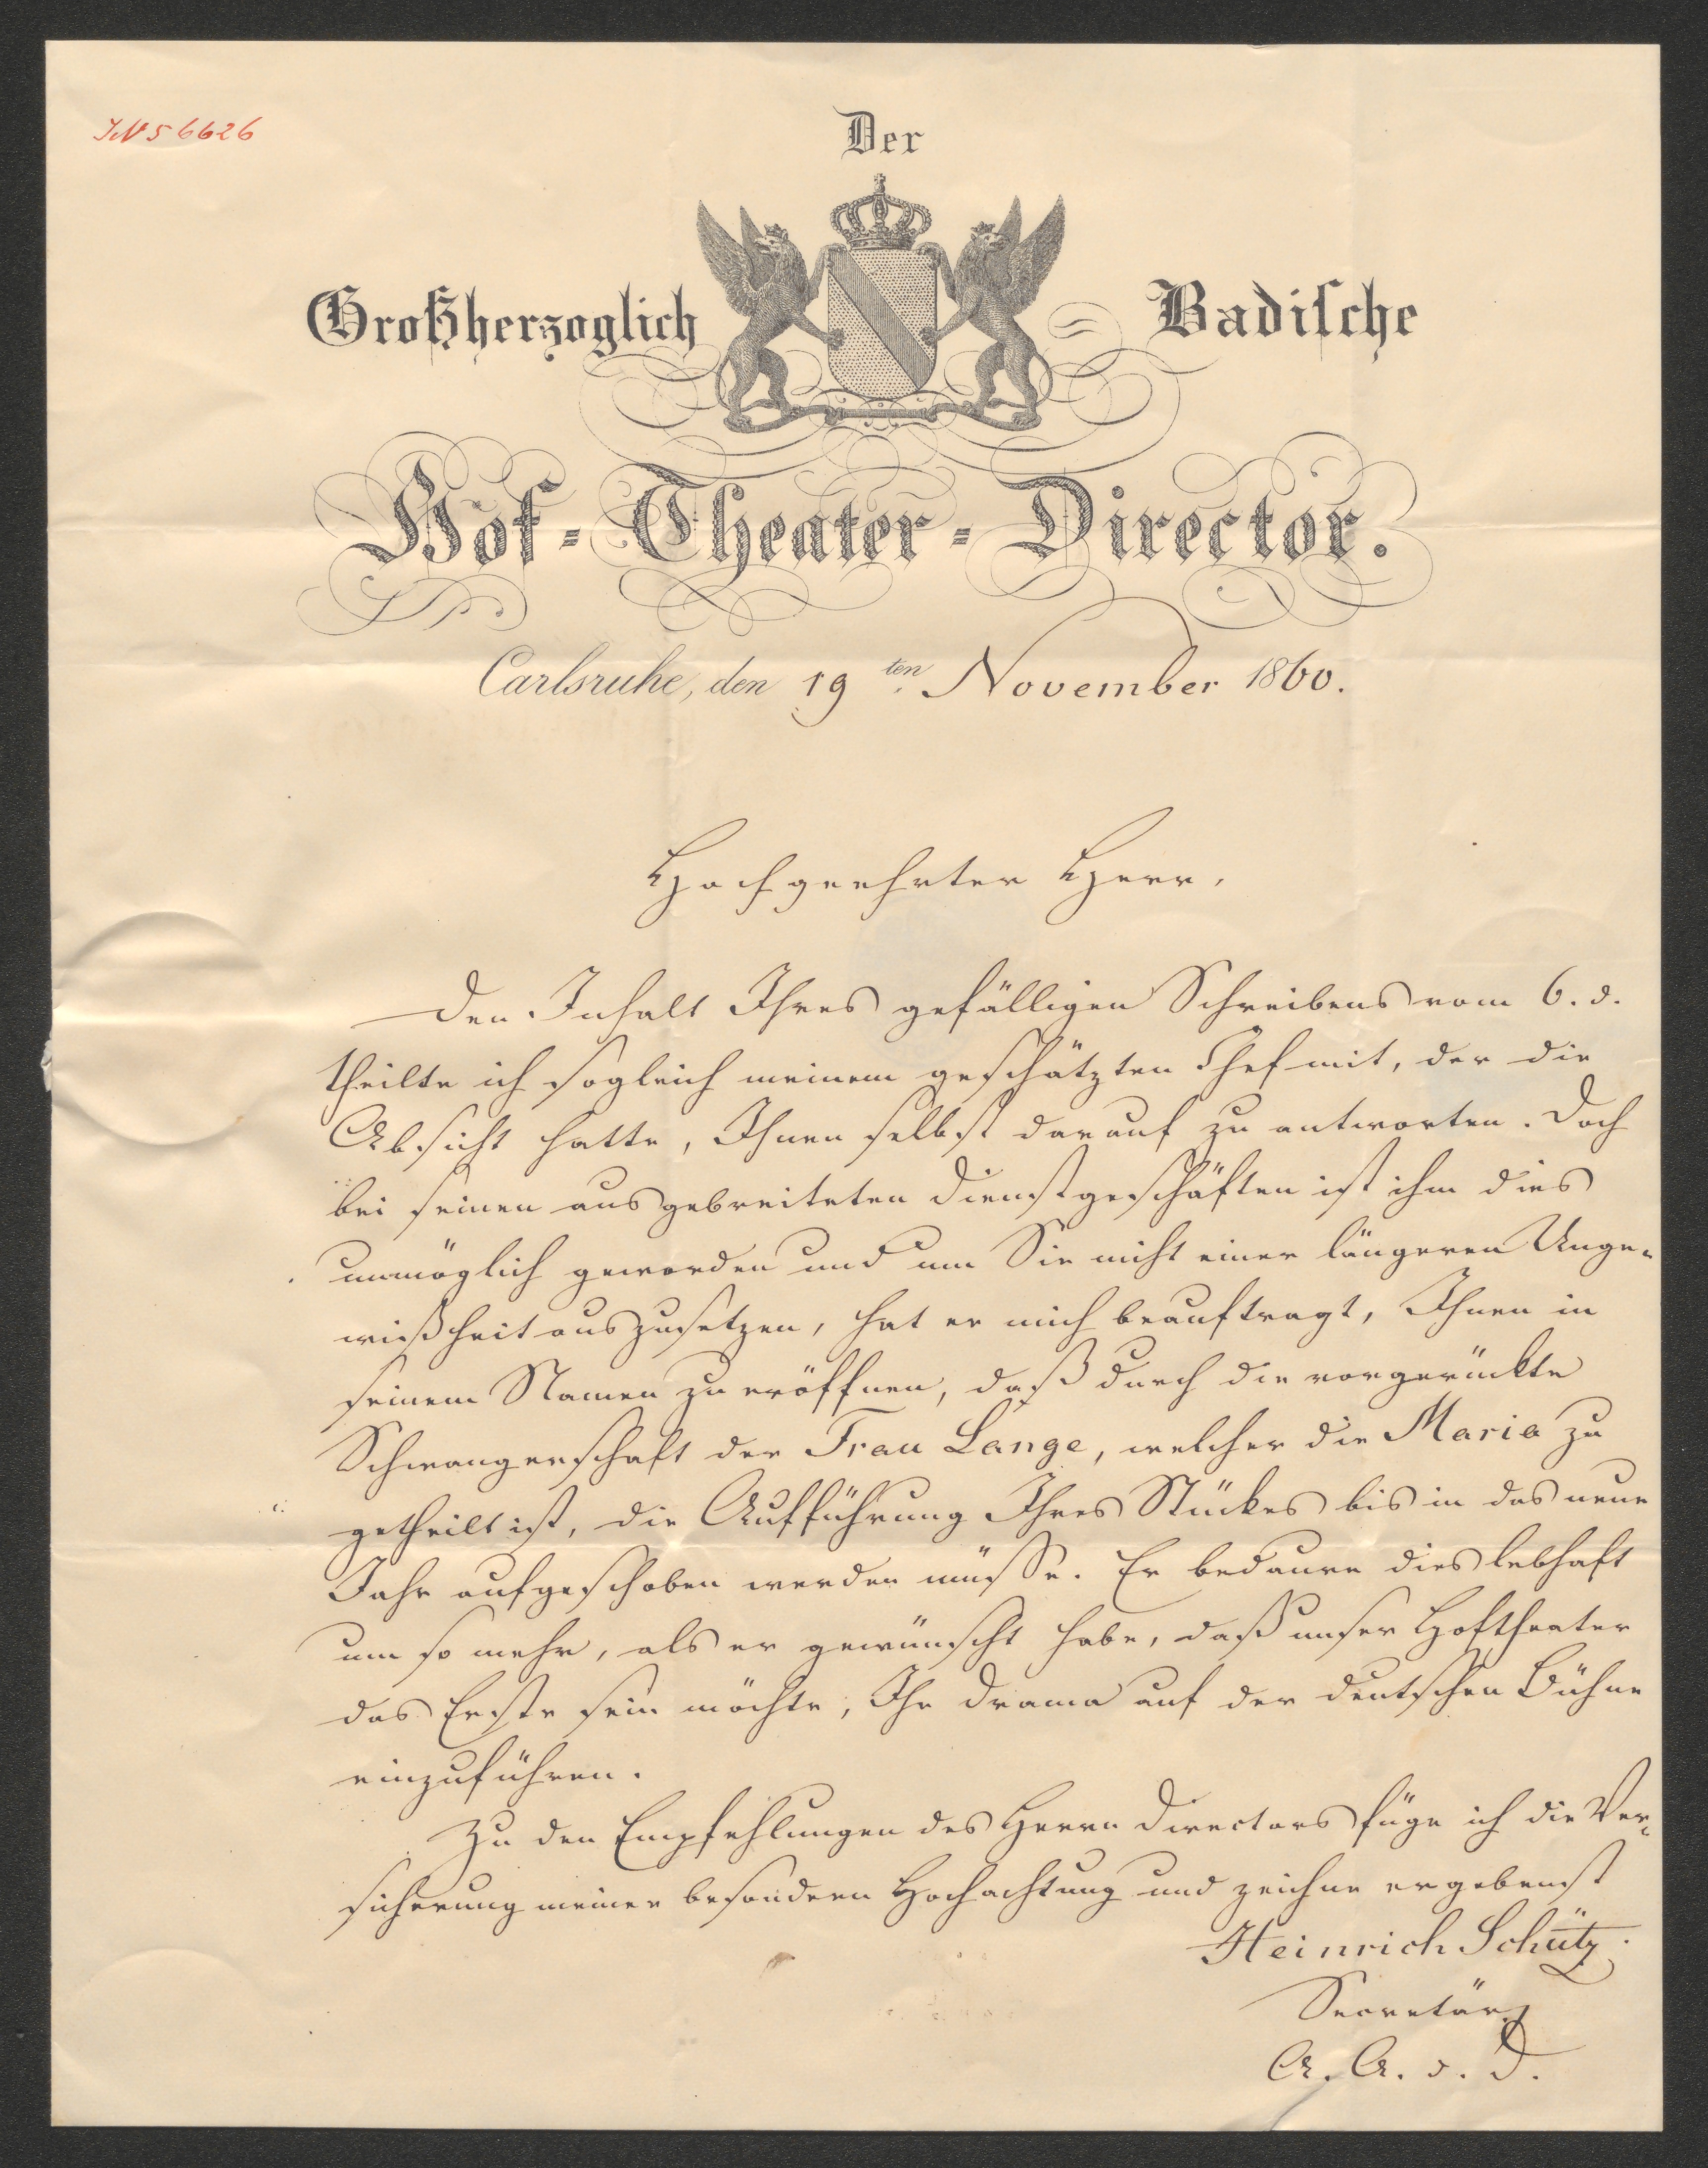 IN 56626
Der
Großherzoglich Badische
Hof-Theater-Director.
Carlsruhe, den 19ten November 1860.
Hochgeehrter Herr,
Den Inhalt Ihres gefälligen Schreibens vom 6. d.
theilte ich sogleich meinem geschätzten Chef mit, der die
Absicht hatte, Ihnen selbst darauf zu antworten. Doch
bei seinen ausgebreiteten Dienstgeschäften ist ihm dies
unmöglich geworden und um Sie nicht einer längeren Unge-
wißheit auszusetzen, hat er mich beauftragt, Ihnen in
seinem Namen zu eröffnen, daß durch die vorgerückte
Schwangerschaft der Frau Lange, welcher die Maria zu
getheilt ist, die Aufführung Ihres Stückes bis in das neue
Jahr aufgeschoben werden müsse. Er bedaure dies lebhaft
um so mehr, als er gewünscht habe, daß unser Hoftheater
das Erste sein möchte, Ihr Drama auf der deutschen Bühne
einzuführen.
Zu den Empfehlungen des Herrn Directors füge ich die Ver-
sicherung meiner besondern Hochachtung und zeichne ergebenst
Heinrich Schütz.
Secretär
A. A. d. D.